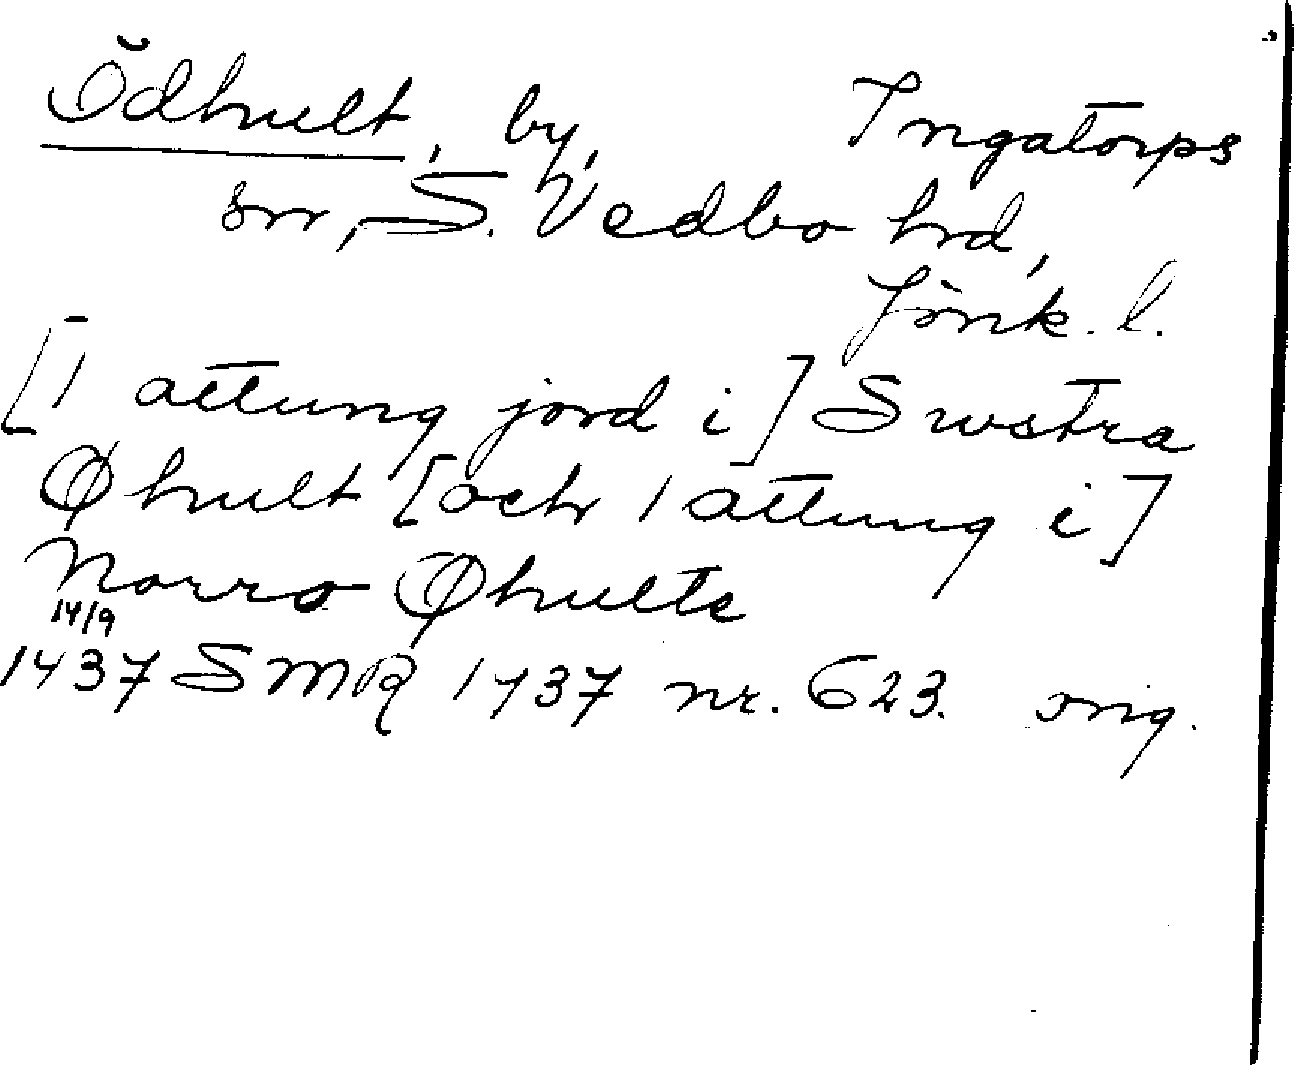 Ödhult, by, Ingatorps
sn, S. Vedbo hrd,
Jönk. l.
[1 attung jord i] Swstra
Øhult [och 1 attung i]
Norro Øhulte
14/9
1437 SMR 1437 nr. 623. orig.